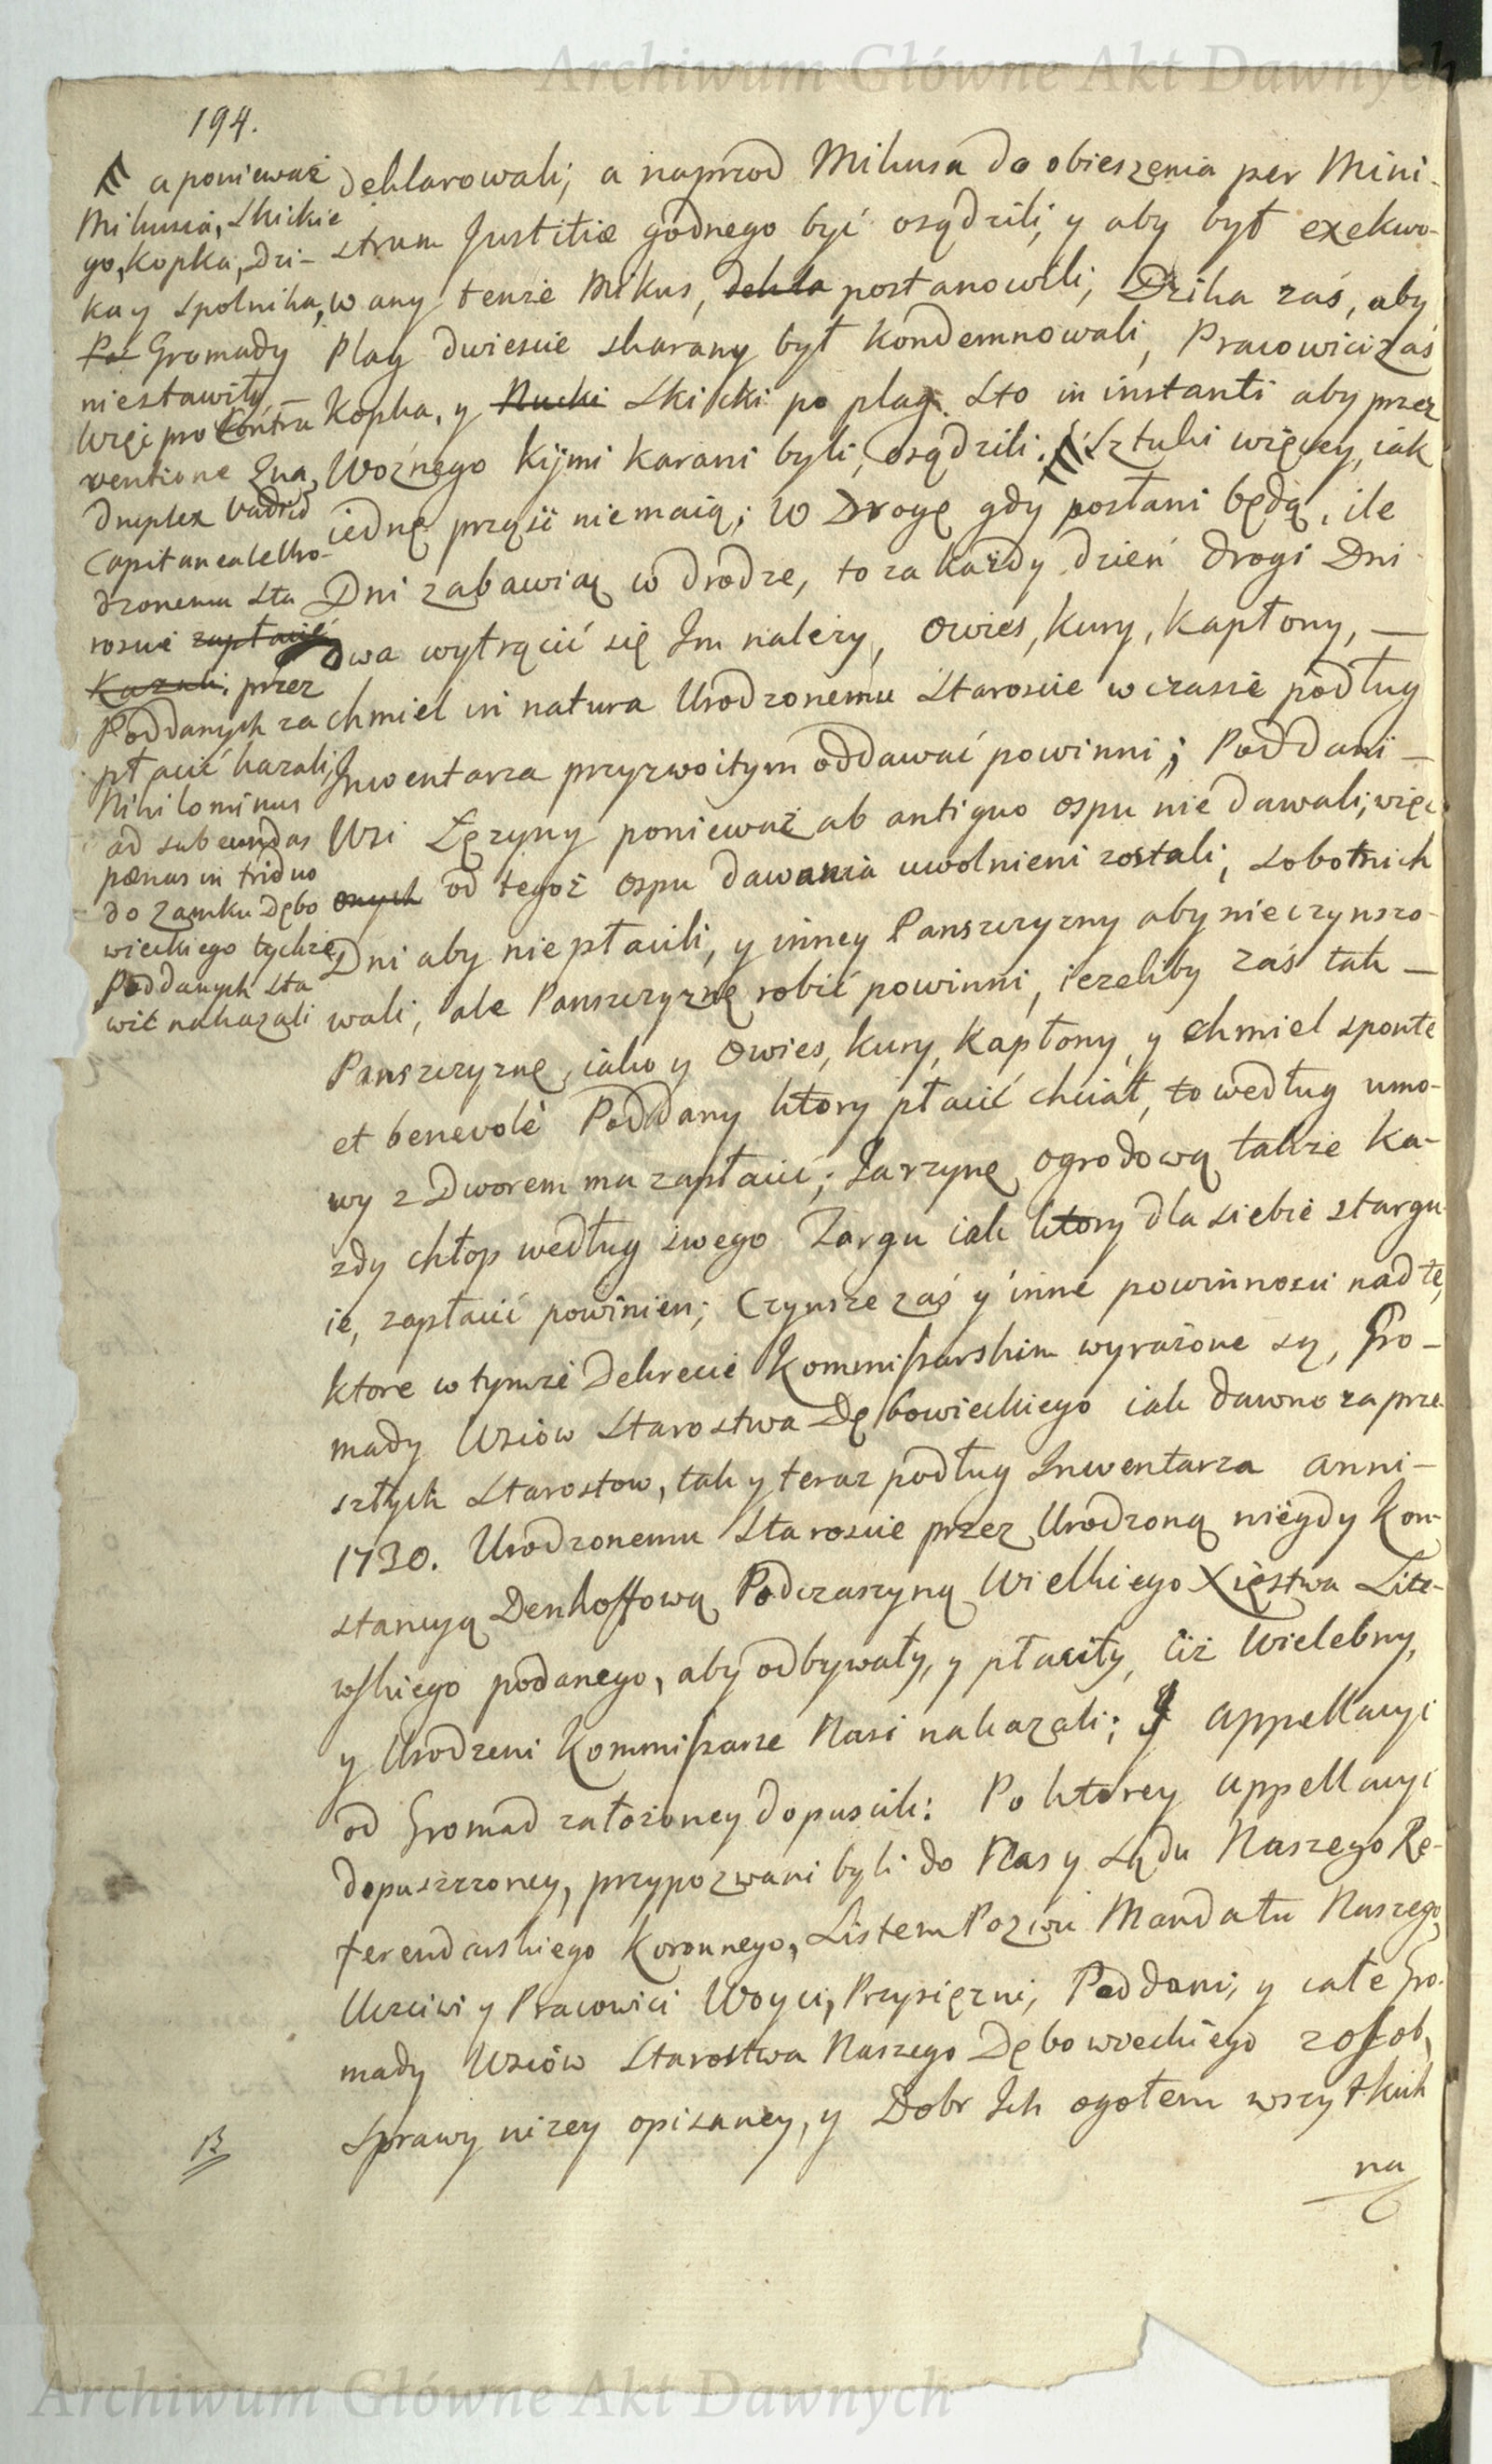 Archiwum Główne Akt Dawnych
194.
a ponieważ
Mikusia, Skickie
go, Kopka, Dzi-
ka y spolnika,
Po Gromady
niestawiły,
Więc pro Contra
ventione Zna
duplex Vadiũ
Capitanealelho
dzonemu Sta
roscie zapłacić
Kazali, przez
Poddanych za
płacić kazali,
Nihilominus
ad subeundas
pænas in triduo
do Zamku Dębo
wieckiego tychże
Poddanych sta
wić nakazali
deklarowali; a naprzod Mikusa do obieszenia per Mini-
strum Justitiæ godnego być osądzili, y aby był exekwo-
wany tenże Mikus, dekla postanowili; Dzika zaś, aby
Plag dwiescie skarany był kondemnowali, Pracowici zaś
Kopka, y Nucki Skicki po plag. Sto in instanti aby przez
Woźnego kijmi karani byli, osądzili: Sztuki więcey, iak
iednę prząść niemaią; W Drogę gdy posłani będą, ile
Dni zabawią w drodze, to za każdy dzień drogi Dni
dwa wytrącić się Im należy, Owies, kury, kapłony, —
chmiel in natura Urodzonemu Staroscie w czasie podług
Inwentarza przyzwoitym oddawać powinni; Poddani —
Wsi Łęzyny ponieważ ab antiquo ospu nie dawali, więc
onych od tegoż ospu dawania uwolnieni zostali, Sobotnich
Dni aby niepłacili, y inney Panszczyzny aby nieczynszo-
wali, ale Panszczyznę robić powinni, ieżeliby zaś tak —
Panszczyznę, iako y Owies, kury, kapłony, y chmiel sponte
et benevolè Poddany ktory płacić chciał, to według umo-
wy z Dworem ma zapłacić; Jarzynę ogrodową także ka-
zdy chłop według swego Targu iak ktory dla siebie starguj
ie, zapłacić powinien; Czynsze zaś y inne powinnosci nad te,
ktore w tymże Dekrecie Kommissarskim wyrażone są, Gro-
mady Wsiow Starostwa Dębowieckiego iak dawno za prze-
szłych Starostow, tak y teraz podług Inwentarza anni —
1730. Urodzonemu Staroscie przez Urodzoną niegdy Kon-
stancyą Denhoffową Podczaszyną Wielkiego Xięstwa Lite-
wskiego podanego, aby odbywały, y płaciły, Ciż Wielebny,
y Urodzeni Kommissarze Nasi nakazali; y appellacyi
od Gromad założoney dopuscili: Po ktorey appellacyi
dopuszczoney, przypozwani byli do Nas y Sądu Naszego Re-
ferendarskiego Koronnego, Listem Pozwu Mandatu Naszego
Uczciwi y Pracowici Woyci, Przysiężni, Poddani, y całe Gro-
mady Wsiow Starostwa Naszego Dębowieckiego zosob,
Sprawy niżey opisaney, y Dobr Ich ogołem wszytkich
na
Archiwum Główne Akt Dawnych